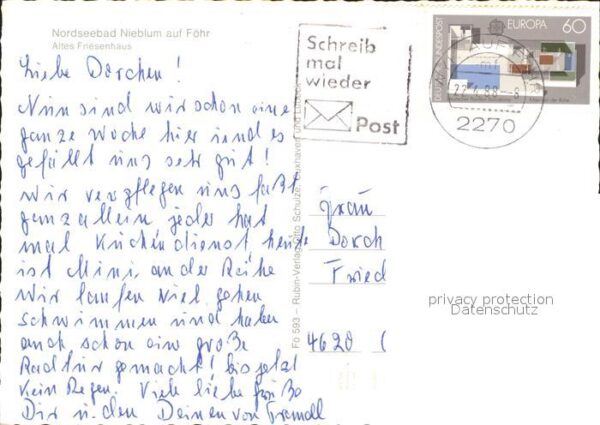 Nordseebad Nieblum auf Föhr
Altes Friesenhaus
Liebe Dorchen!
Nun sind wir schon eine
ganze Woche hier und es
gefällt uns sehr gut!
Wir verpflegen uns fast
ganz allein jeder hat
mal Küchendienst heute
ist Mimi an der Reihe
Wir laufen viel gehen
schwimmen und haben
auch schon eine große
Radtur gemacht! bis jetzt
kein Regen. Viele liebe Grüße
Dir u. den Deinen von
Fo 593 – Rubin-Verlag Otto Schulze, Cuxhaven und
Schreib
mal
wieder
Post
DEUTSCHE BUNDESPOST
EUROPA
60
22.
88.-8
2270
Frau
Dorch
Fried
4620
privacy protection
Datenschutz